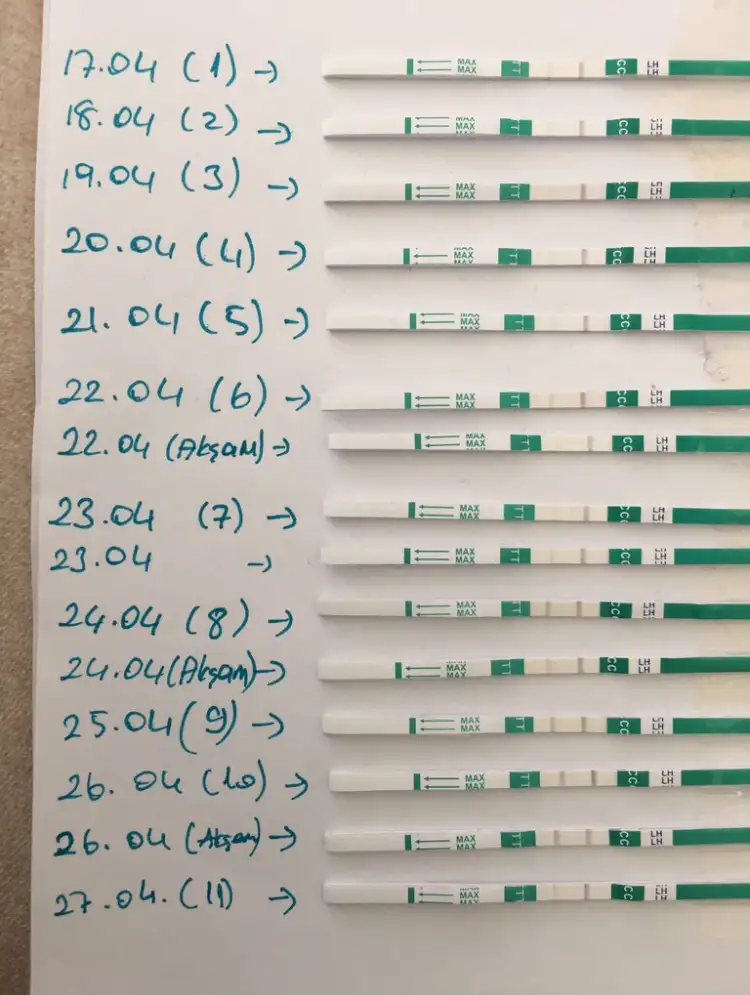 17.04 (1) → MAX MAX TT CC LH LH
18.04 (2) → MAX MAX TT CC LH LH
19.04 (3) → MAX MAX TT CC LH LH
20.04 (4) → MAX MAX TT CC LH LH
21.04 (5) → MAX MAX TT CC LH LH
22.04 (6) → MAX MAX TT CC LH LH
22.04 (Akşam) → MAX MAX TT CC LH LH
23.04 (7) → MAX MAX TT CC LH LH
23.04 → MAX MAX TT CC LH LH
24.04 (8) → MAX MAX TT CC LH LH
24.04 (Akşam) → MAX MAX TT CC LH LH
25.04 (9) → MAX MAX TT CC LH LH
26.04 (10) → MAX MAX TT CC LH LH
26.04 (Akşam) → MAX MAX TT CC LH LH
27.04. (11) → MAX MAX TT CC LH LH